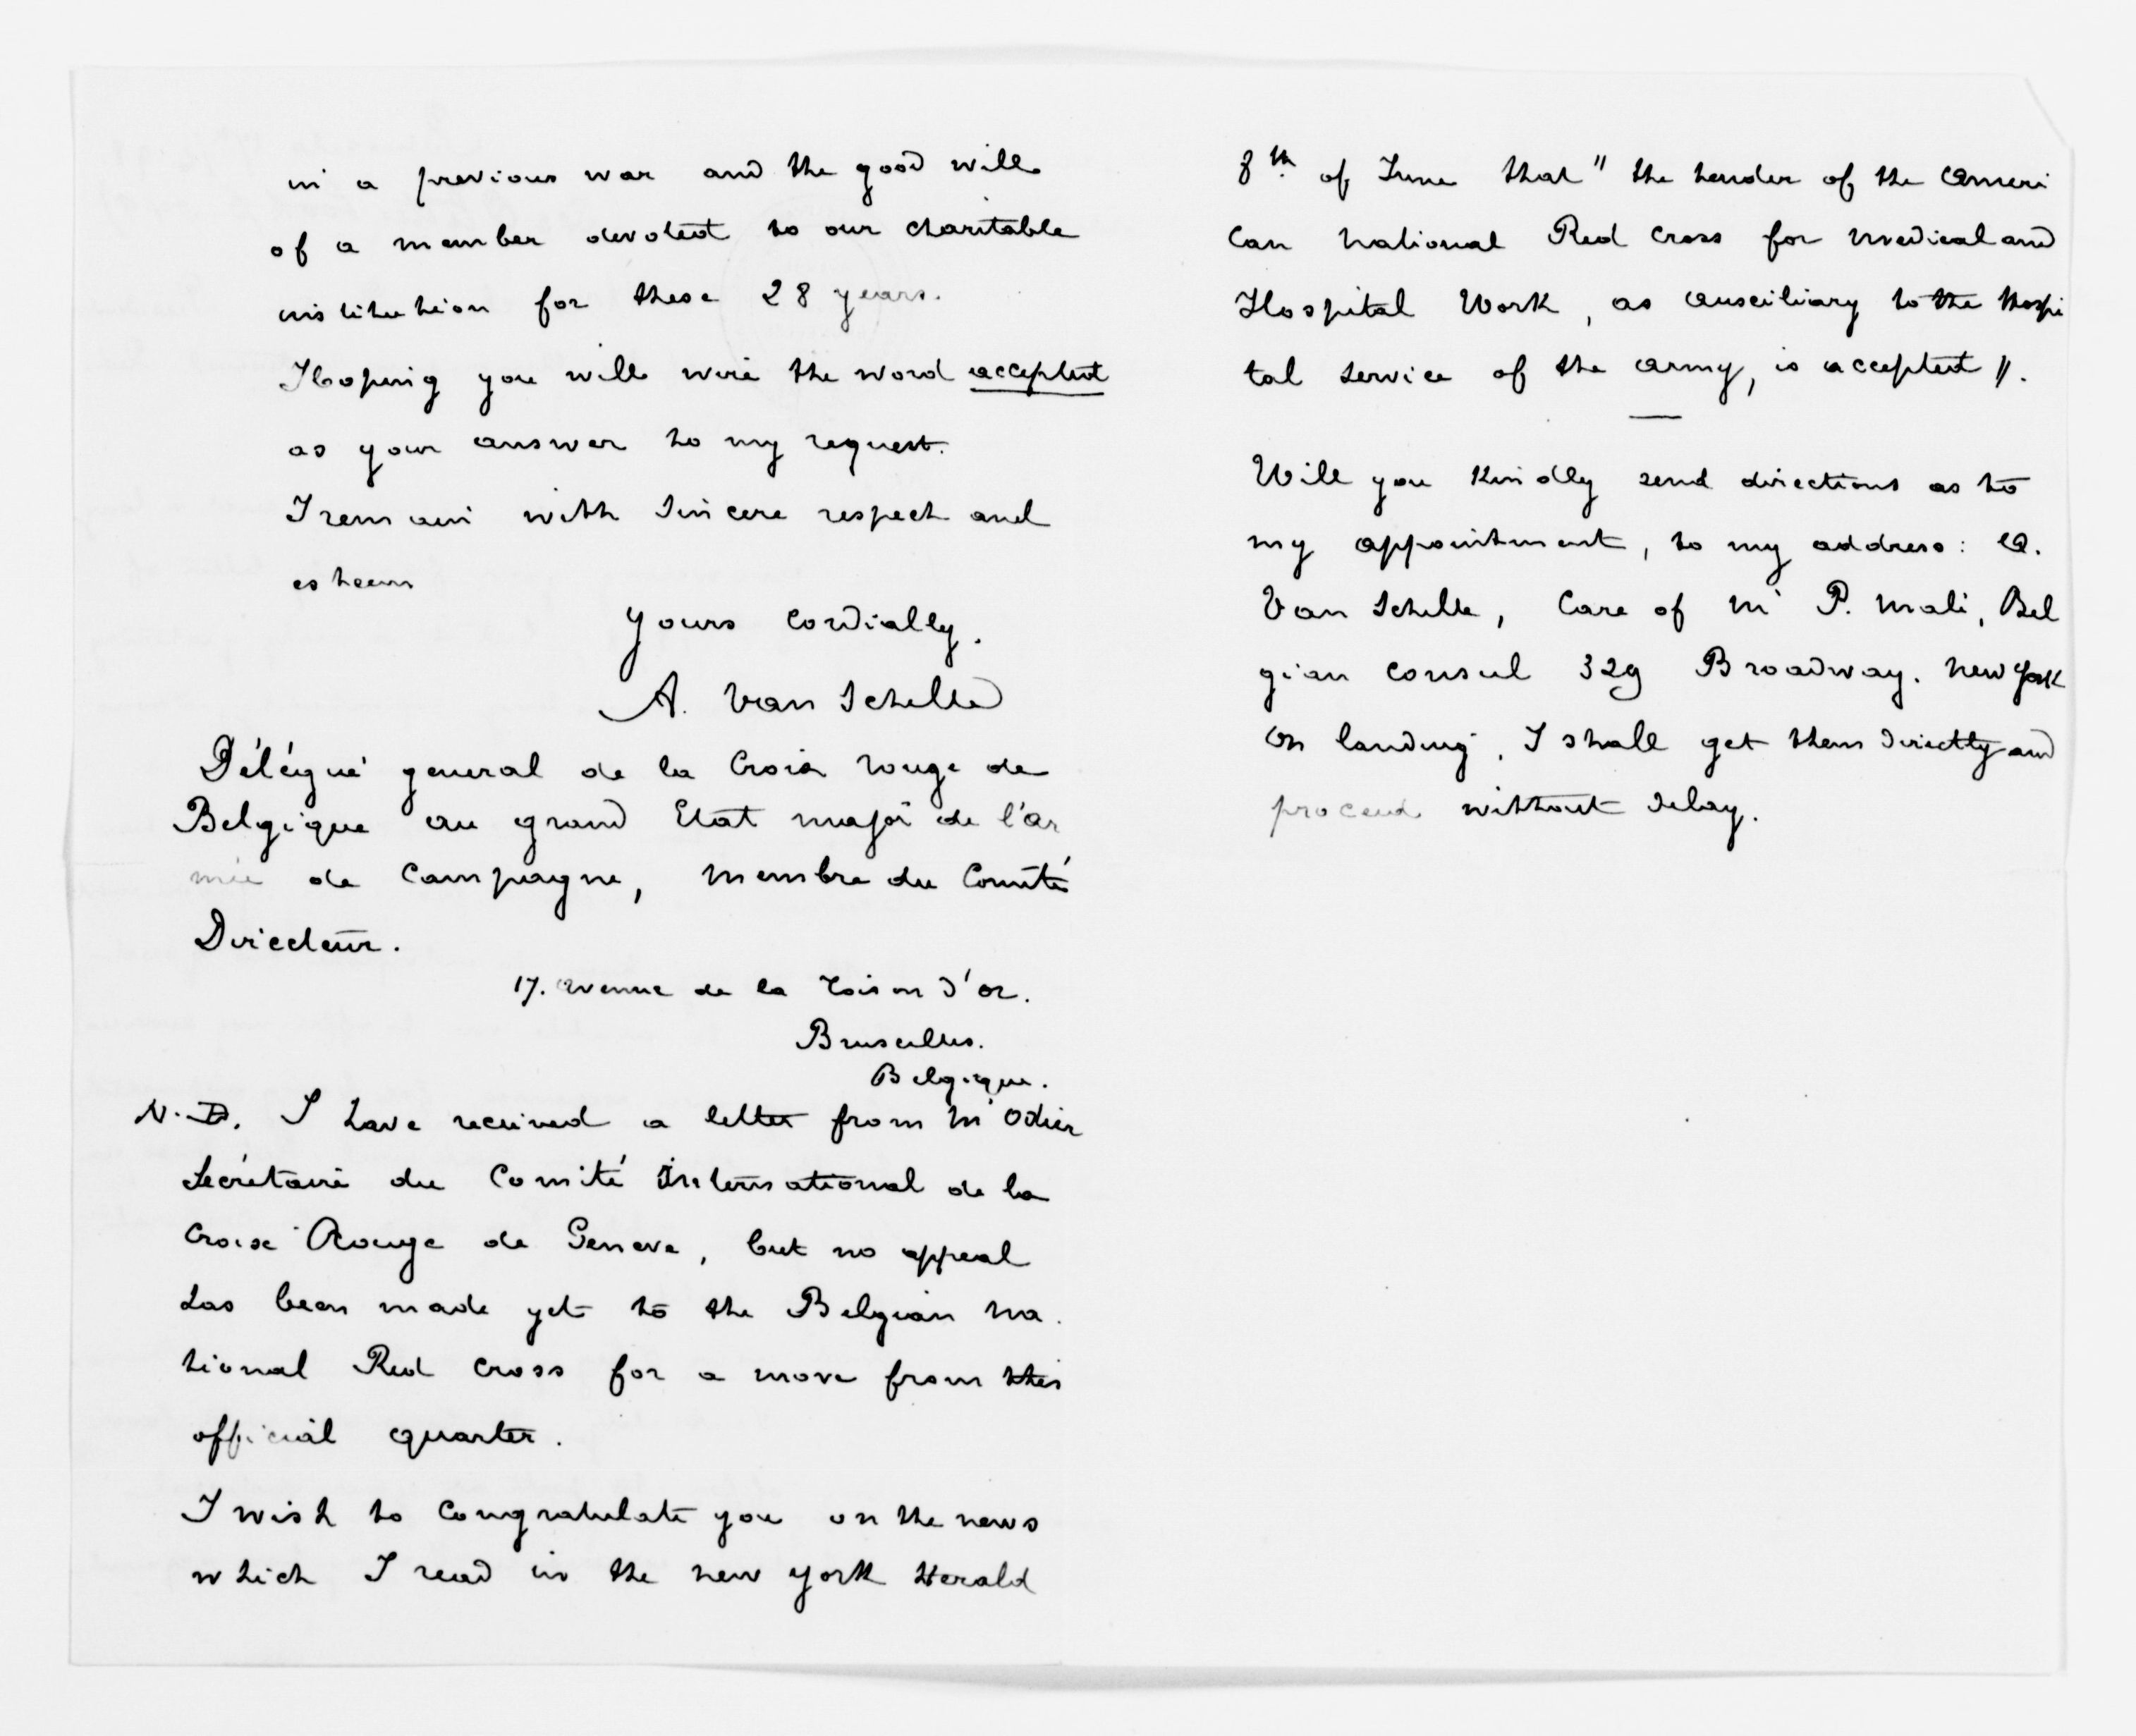 in a previous war and the good will
of a member devoted to our charitable
institution for these 28 years.
Hoping you will wire the word accepted
as your answer to my request.
I remain with sincere respect and
esteem
Yours cordially.
A. Van Schelle
Délégué general de la Croix rouge de
Belgique au grand Etat major de l'ar
mée de campagne, membre du Comité
Directeur.
17. avenue de la Toison d'or.
Bruxelles.
Belgique.
N.B. I have received a letter from Mr Odier
Secrétaire du Comité International de la
Croix Rouge de Geneve, but no appeal
has been made yet to the Belgian na
tional Red Cross for a move from this
official quarter.
I wish to congratulate you on the news
which I read in the new york Herald
8th of June that "the tender of the Ameri
can national Red Cross for medical and
Hospital Work, as auxciliary to the Hospi
tal service of the army, is accepted".
Will you kindly send directions as to
my appointment, to my address: A.
Van Schelle, Care of Mr P. Mali, Bel
gian consul 329 Broadway. New York
On landing, I shall get them directly and
proceed without delay.